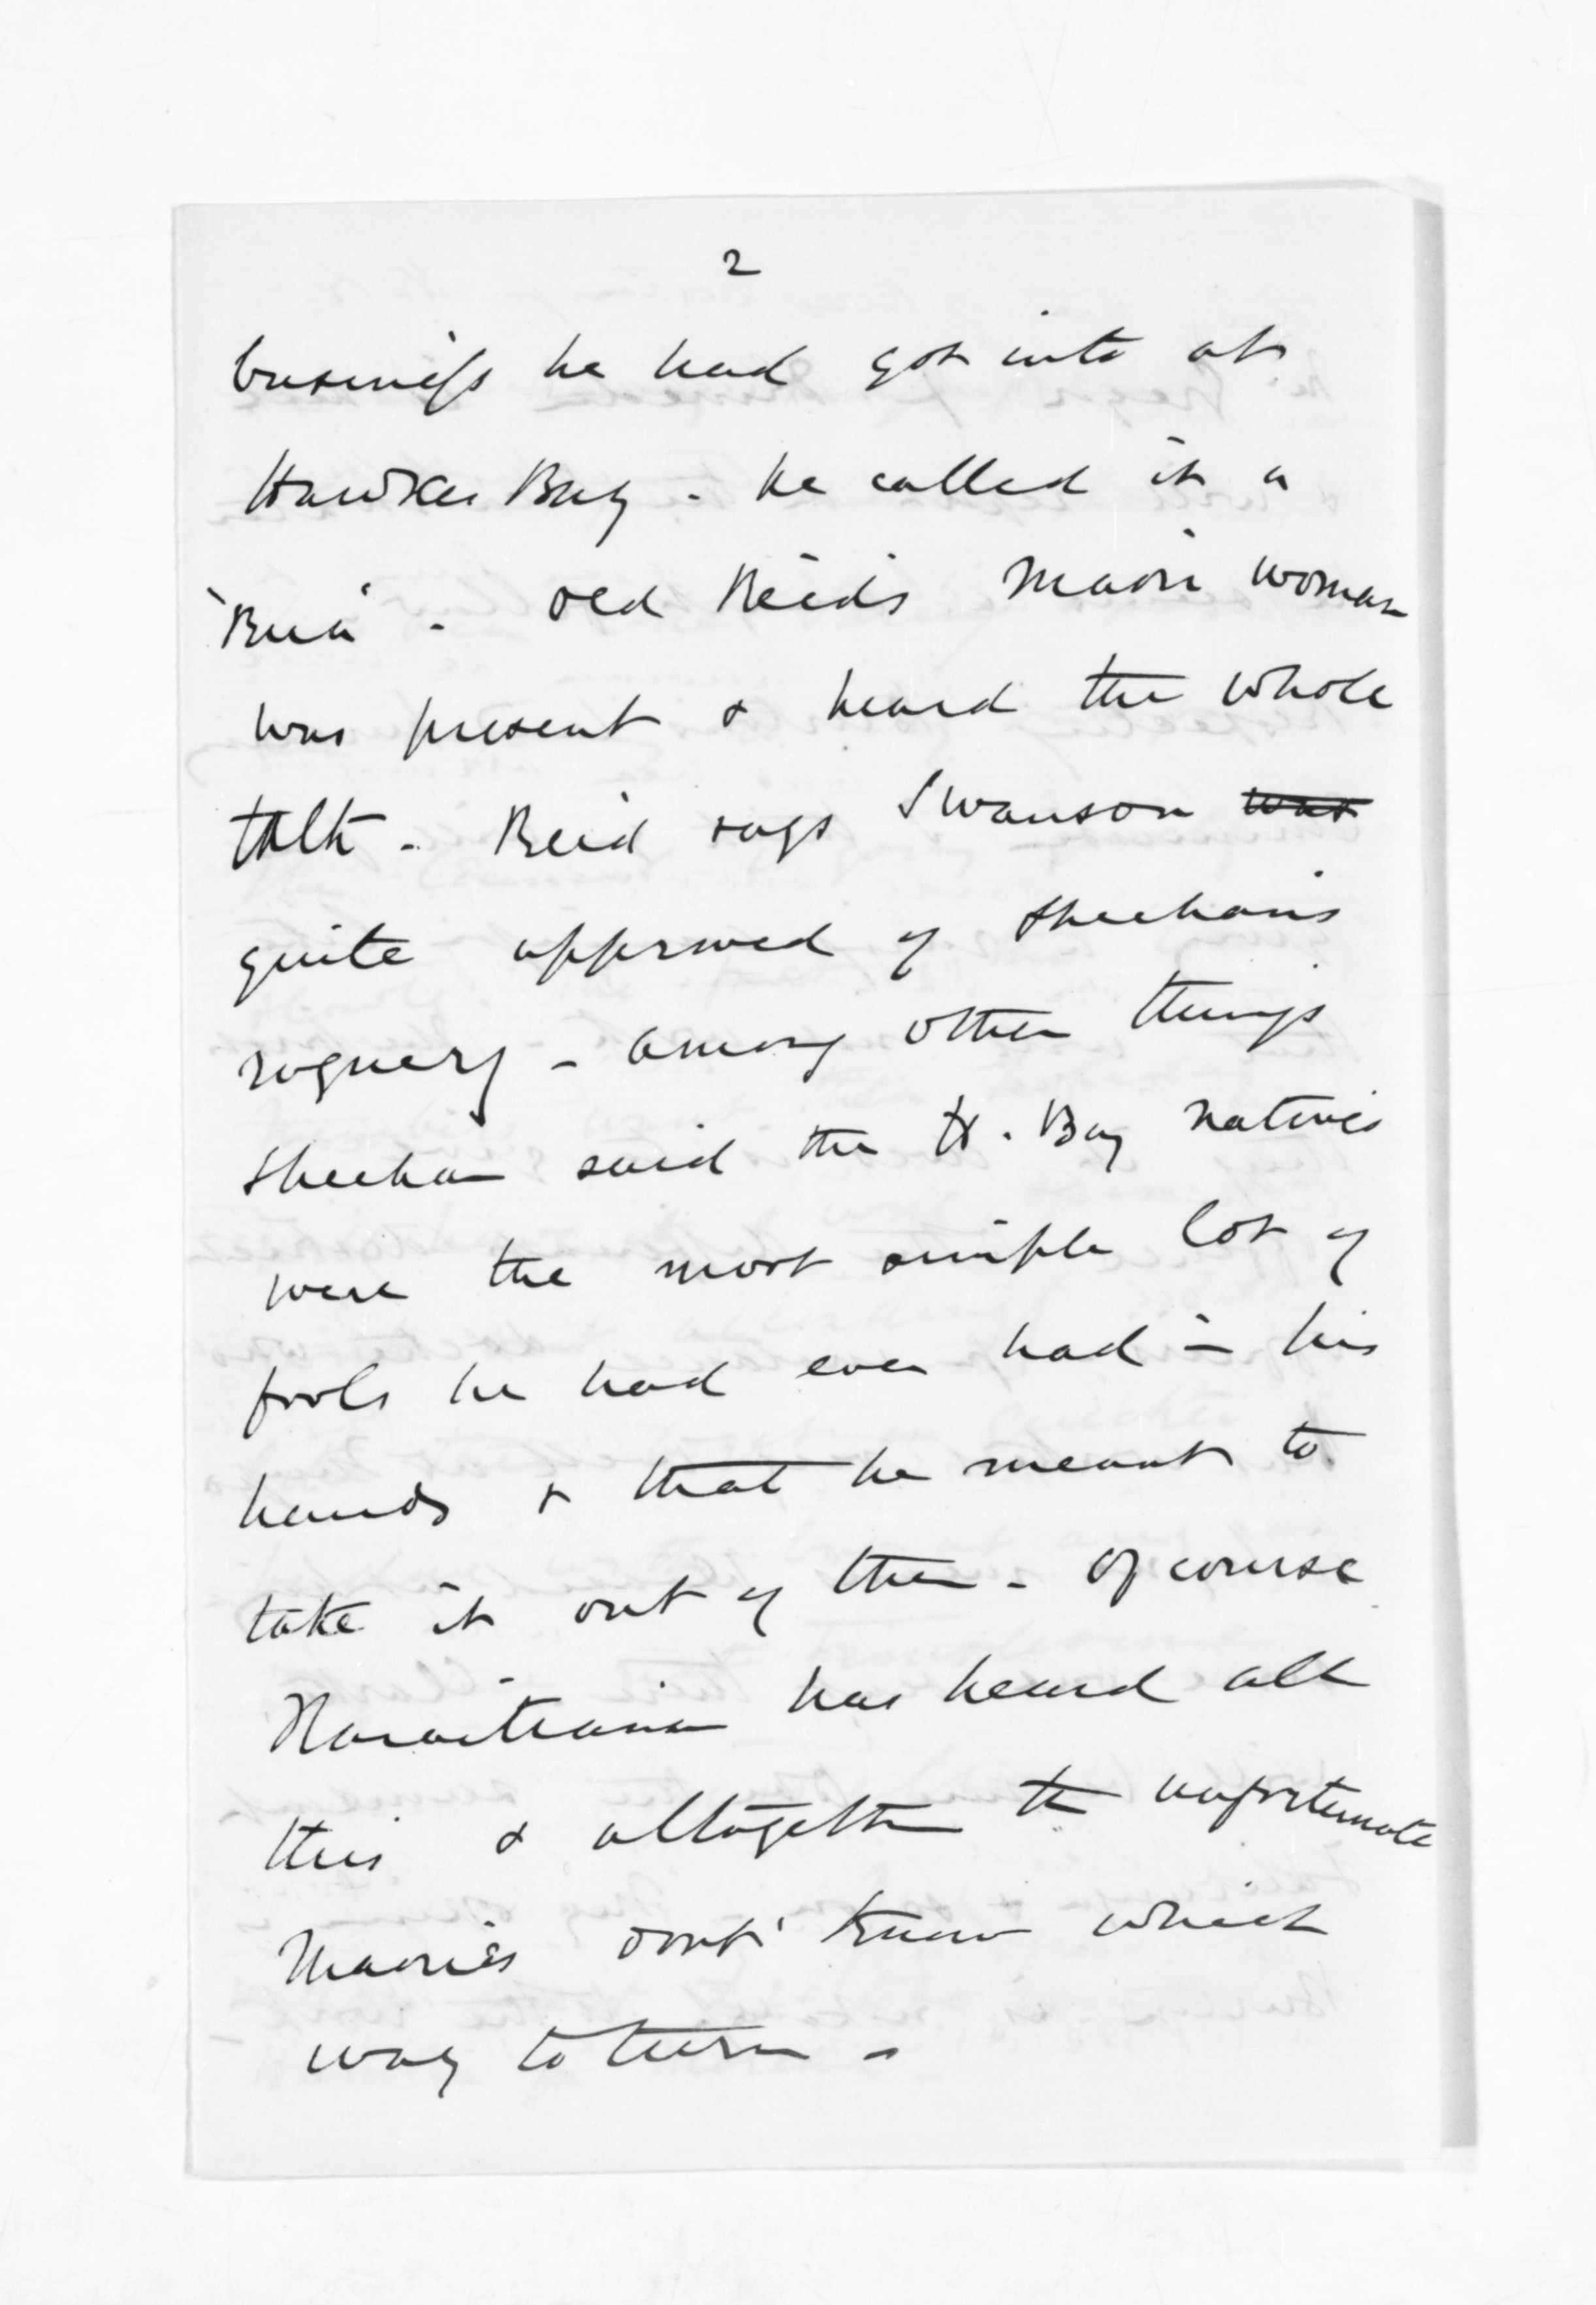 2
business he had got into at
Hawkes Bay - he called it a
'Rua' - old Reid's Maori woman
was present & heard the whole
talk - Reid says Swanson was
quite approved of Sheehan's
roguery - among other things
Sheehan said the H. Bay natives
were the most simple lot of
fools he had ever had in his
hands & that he meant to
take it out of them - Of course
Karaitiana has heard all
this & altogether the unfortunate
Maories dont know which
way to turn -